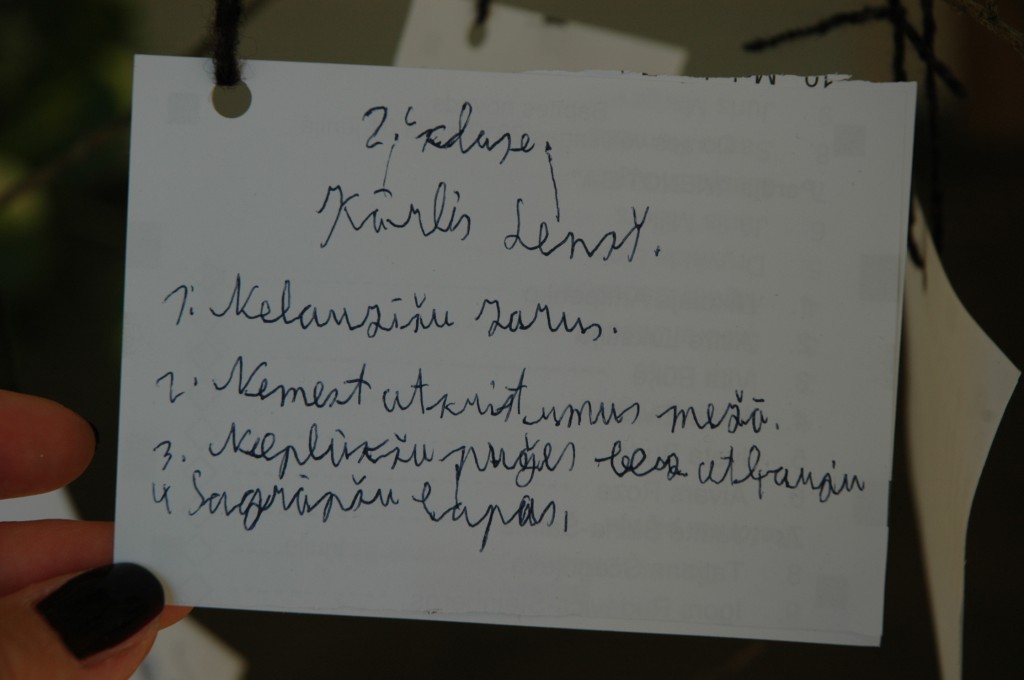 2. klase.
Kārlis
1. Nelauzīšu zarus.
2. Nemest atkritumus mežā.
3. Neplūkšu puķes bez atļauju
4 Sagrāpšu lapas.